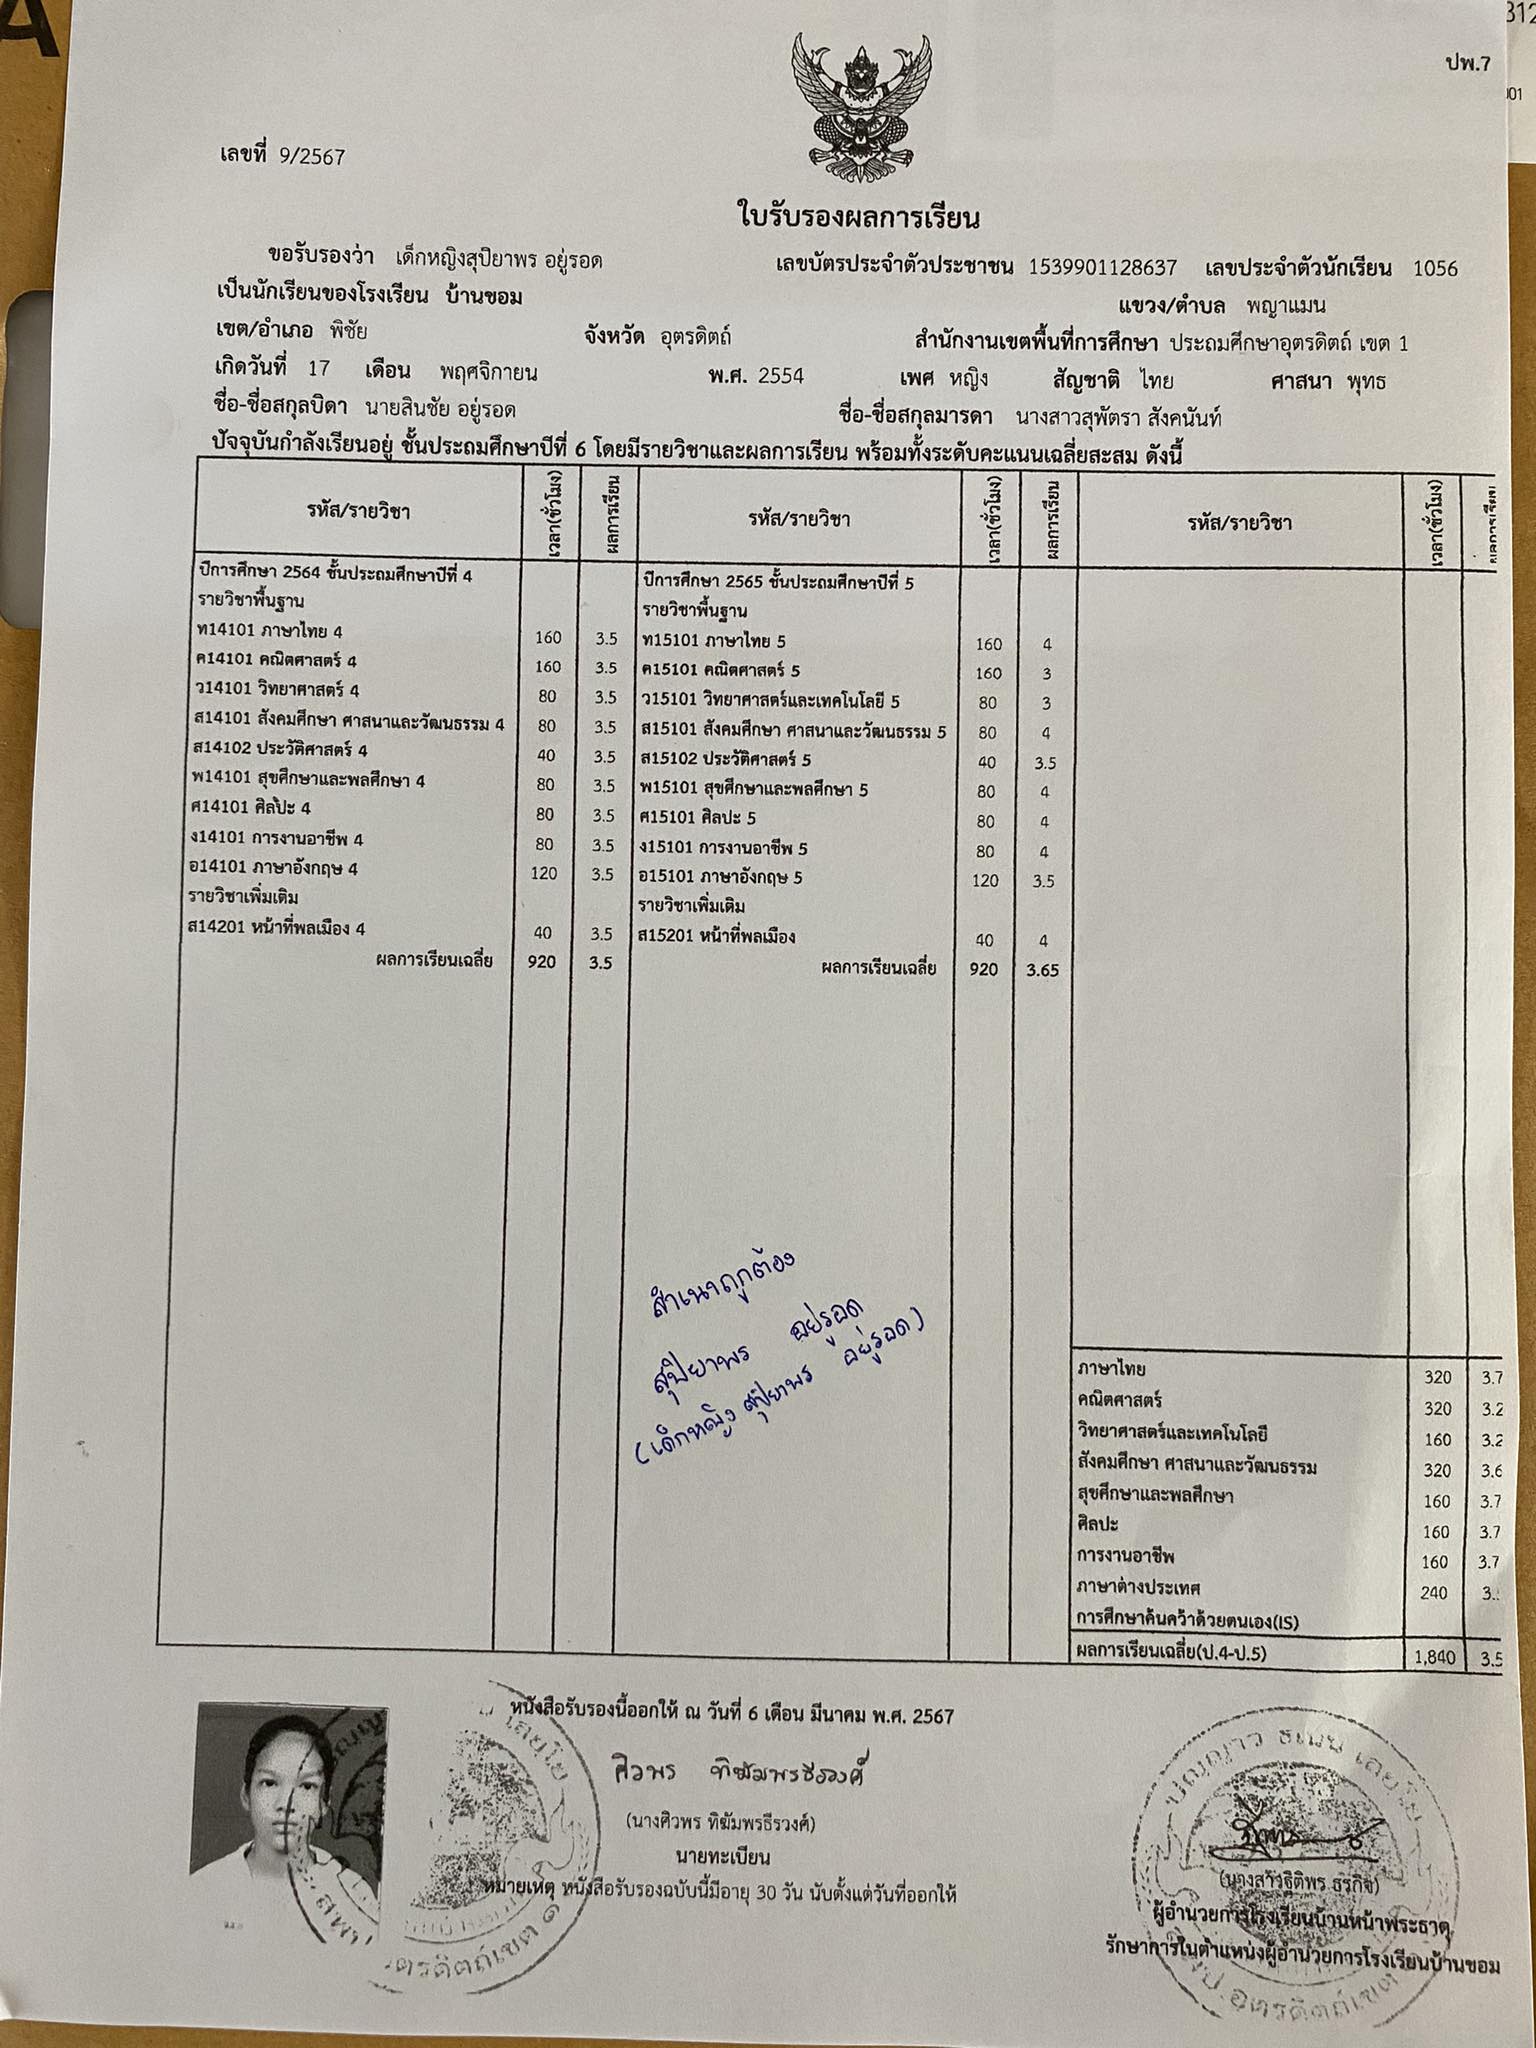 ปพ.7
เลขที่ 9/2567
ใบรับรองผลการเรียน
ขอรับรองว่า เด็กหญิงสุปิยาพร อยู่รอด เลขบัตรประจำตัวประชาชน 1539901128637 เลขประจำตัวนักเรียน 1056
เป็นนักเรียนของโรงเรียน บ้านขอม แขวง/ตำบล พญาแมน
เขต/อำเภอ พิชัย จังหวัด อุตรดิตถ์ สำนักงานเขตพื้นที่การศึกษา ประถมศึกษาอุตรดิตถ์ เขต 1
เกิดวันที่ 17 เดือน พฤศจิกายน พ.ศ. 2554 เพศ หญิง สัญชาติ ไทย ศาสนา พุทธ
ชื่อ-ชื่อสกุลบิดา นายสินชัย อยู่รอด ชื่อ-ชื่อสกุลมารดา นางสาวสุพัตรา สังคนันท์
ปัจจุบันกำลังเรียนอยู่ ชั้นประถมศึกษาปีที่ 6 โดยมีรายวิชาและผลการเรียน พร้อมทั้งระดับคะแนนเฉลี่ยสะสม ดังนี้
รหัส/รายวิชา เวลา(ชั่วโมง) ผลการเรียน รหัส/รายวิชา เวลา(ชั่วโมง) ผลการเรียน รหัส/รายวิชา เวลา(ชั่วโมง) ผลการเรียน
ปีการศึกษา 2564 ชั้นประถมศึกษาปีที่ 4
รายวิชาพื้นฐาน
ท14101 ภาษาไทย 4 160 3.5
ค14101 คณิตศาสตร์ 4 160 3.5
ว14101 วิทยาศาสตร์ 4 80 3.5
ส14101 สังคมศึกษา ศาสนาและวัฒนธรรม 4 80 3.5
ส14102 ประวัติศาสตร์ 4 40 3.5
พ14101 สุขศึกษาและพลศึกษา 4 80 3.5
ศ14101 ศิลปะ 4 80 3.5
ง14101 การงานอาชีพ 4 80 3.5
อ14101 ภาษาอังกฤษ 4 120 3.5
รายวิชาเพิ่มเติม
ส14201 หน้าที่พลเมือง 4 40 3.5
ผลการเรียนเฉลี่ย 920 3.5
ปีการศึกษา 2565 ชั้นประถมศึกษาปีที่ 5
รายวิชาพื้นฐาน
ท15101 ภาษาไทย 5 160 4
ค15101 คณิตศาสตร์ 5 160 3
ว15101 วิทยาศาสตร์และเทคโนโลยี 5 80 3
ส15101 สังคมศึกษา ศาสนาและวัฒนธรรม 5 80 4
ส15102 ประวัติศาสตร์ 5 40 3.5
พ15101 สุขศึกษาและพลศึกษา 5 80 4
ศ15101 ศิลปะ 5 80 4
ง15101 การงานอาชีพ 5 80 4
อ15101 ภาษาอังกฤษ 5 120 3.5
รายวิชาเพิ่มเติม
ส15201 หน้าที่พลเมือง 40 4
ผลการเรียนเฉลี่ย 920 3.65
สำเนาถูกต้อง
สุปิยาพร อยู่รอด
(เด็กหญิง สุปิยาพร อยู่รอด)
ภาษาไทย 320 3.7
คณิตศาสตร์ 320 3.2
วิทยาศาสตร์และเทคโนโลยี 160 3.2
สังคมศึกษา ศาสนาและวัฒนธรรม 320 3.6
สุขศึกษาและพลศึกษา 160 3.7
ศิลปะ 160 3.7
การงานอาชีพ 160 3.7
ภาษาต่างประเทศ 240 3.
การศึกษาค้นคว้าด้วยตนเอง(IS)
ผลการเรียนเฉลี่ย(ป.4-ป.5) 1,840 3.5
หนังสือรับรองนี้ออกให้ ณ วันที่ 6 เดือน มีนาคม พ.ศ. 2567
ศิวพร ทิฆัมพรธีรวงศ์
(นางศิวพร ทิฆัมพรธีรวงศ์)
นายทะเบียน
หมายเหตุ หนังสือรับรองฉบับนี้มีอายุ 30 วัน นับตั้งแต่วันที่ออกให้
(นางสาวฐิติพร ธุรกิจ)
ผู้อำนวยการโรงเรียนบ้านหน้าพระธาตุ
รักษาการในตำแหน่งผู้อำนวยการโรงเรียนบ้านขอม